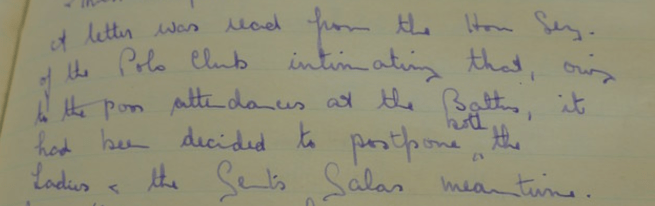 A letter was read from the Hon Secy.
of the Polo Club intimating that, owing
to the poor attendances at the Baths, it
had been decided to postpone both the
Ladies & the Gents Galas meantime.